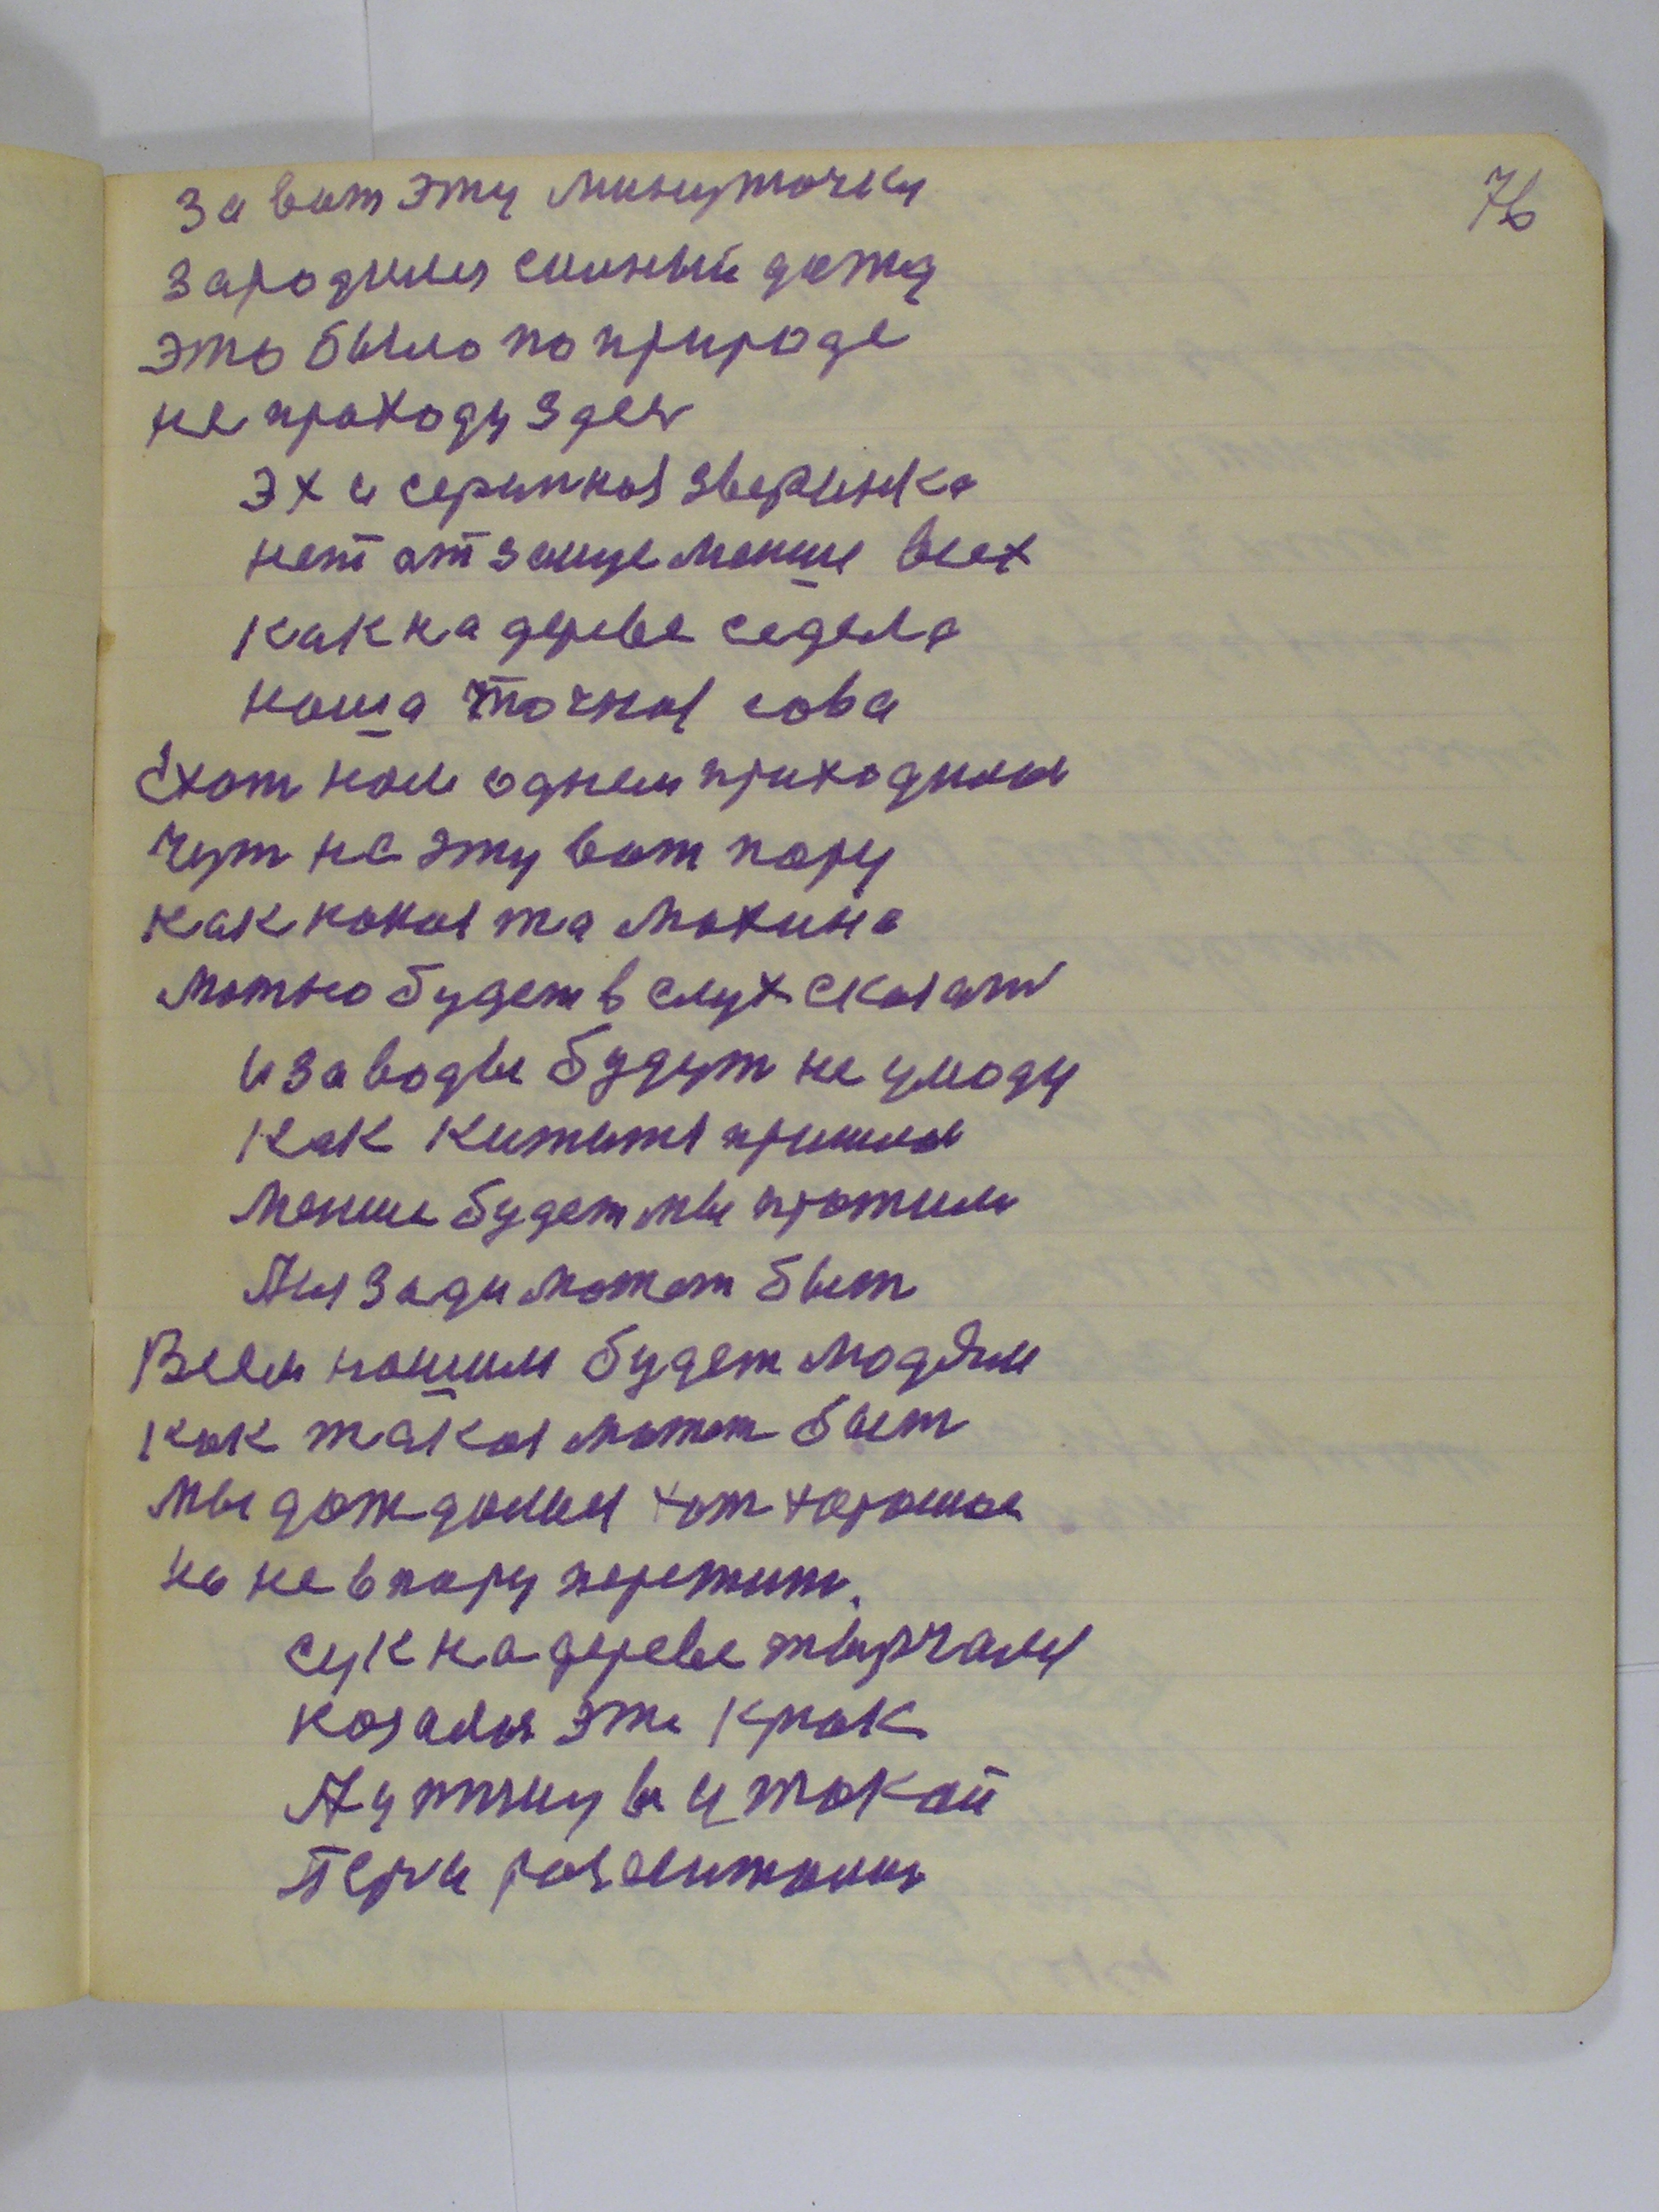 76
За вот эту минуточку
зародился синный дожд
это было по природе
не проходу здес
Эх и серинкая зверинка
нет от заице менше всех
как на дереве седела
наша точная сова
Ехат нам однем приходилос
Чут не эту вот пору
как какая та махина
можно будет в слух сказат
и заводы будут не умоду
как китится пришлос
менше будет мы прожили
А сзади может быт
Всем нашим будет людям
как такая может быт
мы дождалися хот хорошое
но не в пору пережит.
сук на дереве тырчался
казался это крюк
А у птицы в и такой
Перья